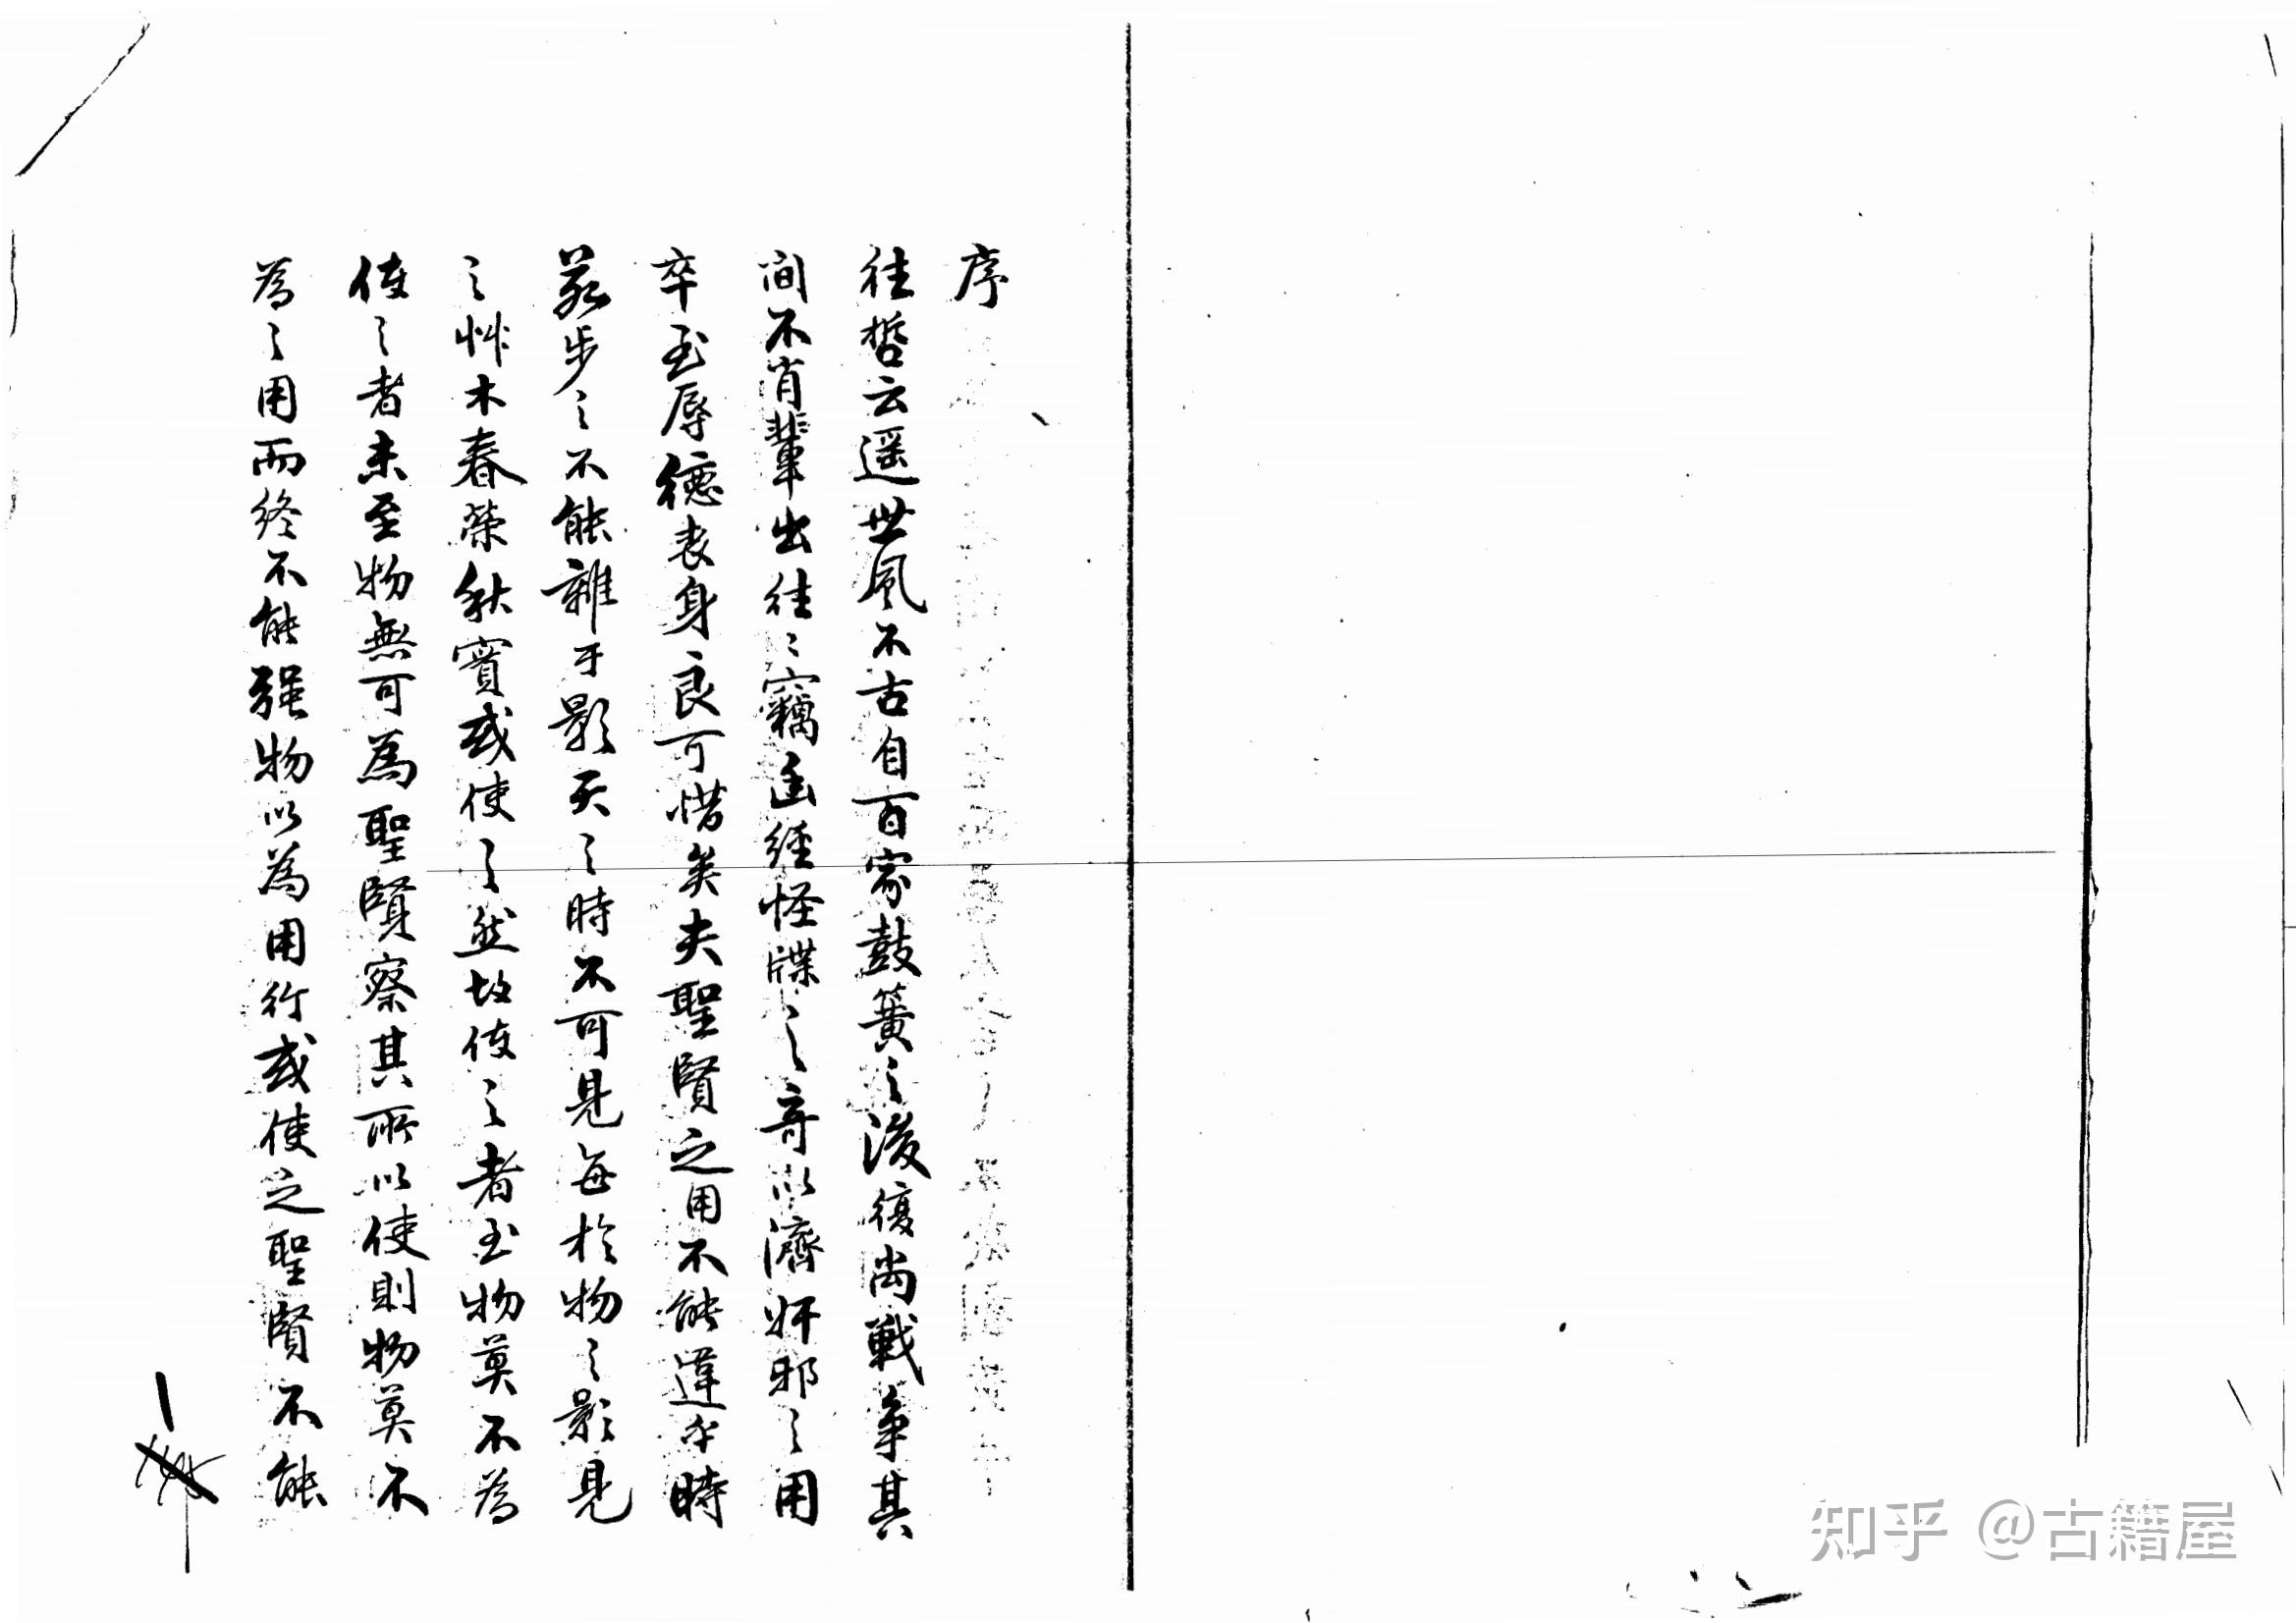 序
往哲云遥世風不古自百家鼓簧之後復尚戰争其
间不肖輩出往〻竊幽經怪牒之奇以濟奸邪之用
卒至辱德喪身良可惜矣夫聖賢之用不能違乎時
若步之不能離于影天之時不可見每於物之影見
之艸木春榮秋實或使之然故使之者至物莫不為
使之者未至物無可為聖賢察其所以使則物莫不
為之用而終不能强物以為用行或使之聖賢不能
知乎 @古籍屋